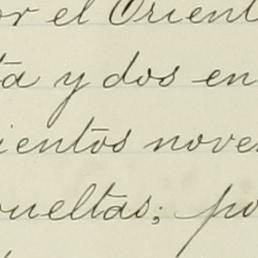 or el Orient
ta y dos en
ientos nove
vueltas; po